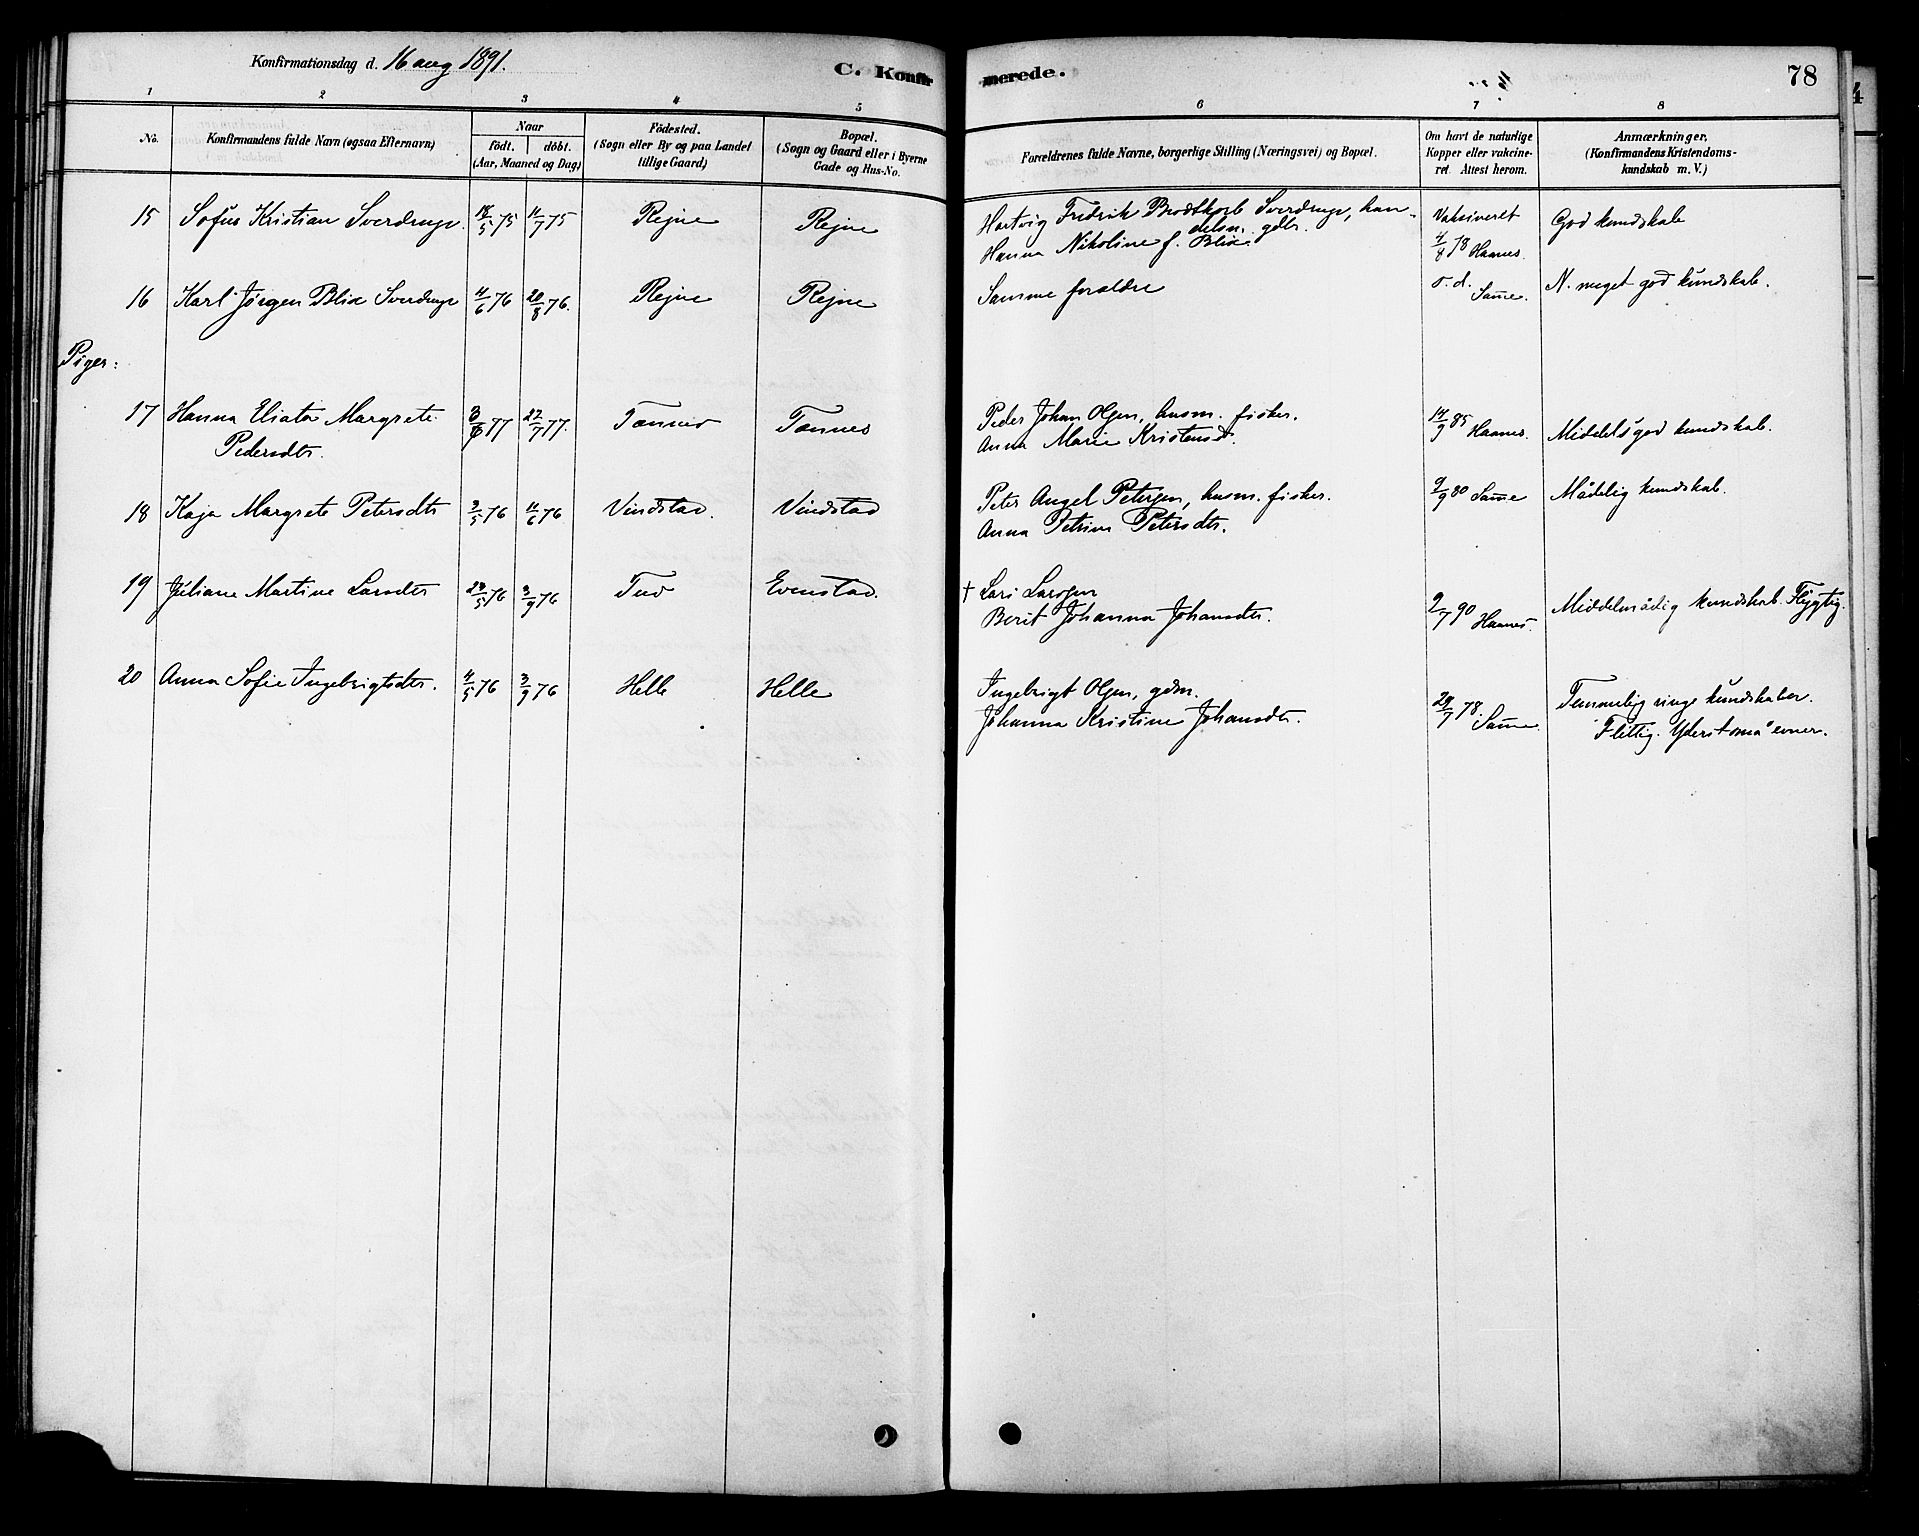 Konfirmationsdag d. 16 aug 1891.
C. Konfir
merede.
78
1 2 3 4 5 6 7 8
No.
Konfirmandens fulde Navn (ogsaa Efternavn)
Naar
födt. döbt.
(Aar, Maaned og Dag)
Födested.
(Sogn eller By og paa Landet
tillige Gaard)
Bopæl.
(Sogn og Gaard eller i Byerne
Gade og Hus-No.
Forældrenes fulde Navne, borgerlige Stilling (Næringsvei) og Bopæl.
Om havt de naturlige
Kopper eller vakcine-
ret. Attest herom.
Anmærkninger,
(Konfirmandens Kristendoms-
kundskab m. V.)
15 Sofus Kristian Sverdrup. 18/5 75 11/7 75 Rejne Rejne Hartvig Fredrik Brodtkorb Sverdrup, han- Vaksineret God kundskab
delsm. gdbr.
Hanna Nikoline f. Blix. 4/8 78 Haanes.
16 Karl Jørgen Blix Sverdrup 11/6 76 20/8 76. Rejne Rejne Samme forældre s. d. Samme. N. meget god kundskab.
Piger:
17 Hanna Margrete 77 22/7 77. Tønnes Tønnes Peder Johan Olsen, husm. fisker. 14/9 85 Haanes. Middelsgod kundskab.
Pedersdtr. Anna Marie Kristensd.
18 Kaja Margrete Petersdtr 3/5 76 11/6 76 Vindstad. Vindstad Peter Angel Petersen, husm. fisker. 9/9 80 Samme Mådelig kundskab.
Anna Petrine Petersdtr.
19 Juliane Martine Larsdtr 23/5 76 3/9 76 Tuv Evenstad. † Lars Larsen 2/7 90 Haanes. Middelmådig kundskab. Flygtig.
Berit Johanna Johansdtr.
20 Anna Sofie Ingebrigtsdtr. 4/5 76 3/9 76 Helle Helle Ingebrigt Olsen, gdm. 29/7 78. Samme Temmelig ringe kundskaber.
Johanna Kristine Johansdtr. Flittig. Yderst små evner.